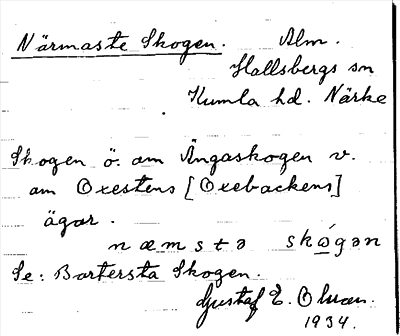 Närmaste Skogen. Alm.
Hallsbergs sn
Kumla hd. Närke
Skogen ö. om Ängaskogen v.
om Oxestens [Oxebackens]
ägor.
næmsta skǫ́gən
Se: Bartersta Skogen.
Gustaf E. Olsson.
1934.